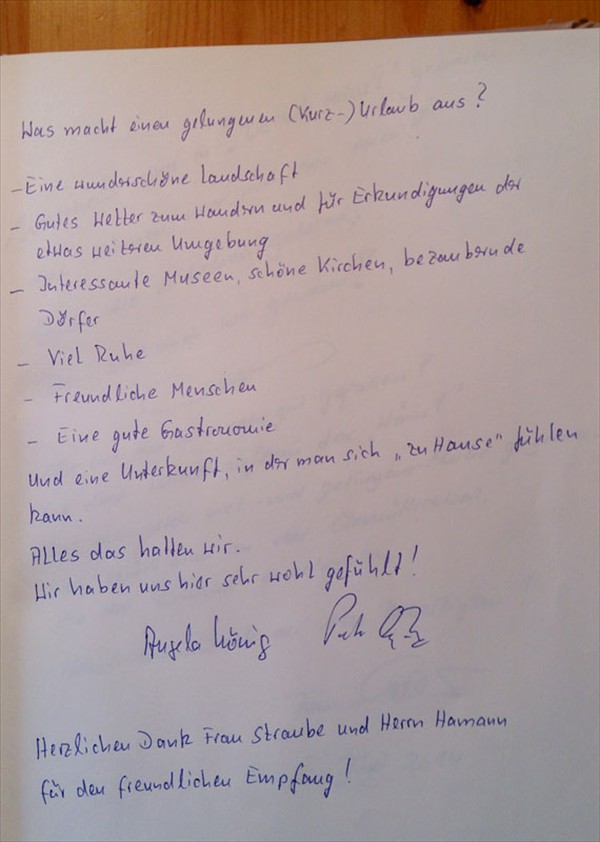 Was macht einen gelungenen (Kurz-) Urlaub aus?
- Eine wunderschöne Landschaft
- Gutes Wetter zum Wandern und für Erkundigungen der
etwas weiteren Umgebung
- Interessante Museen, schöne Kirchen, bezaubernde
Dörfer
- Viel Ruhe
- Freundliche Menschen
- Eine gute Gastronomie
Und eine Unterkunft, in der man sich „zu Hause" fühlen
kann.
Alles das hatten wir.
Wir haben uns hier sehr wohl gefühlt!
Angela König
Herzlichen Dank Frau Straube und Herrn Hamann
für den freundlichen Empfang!